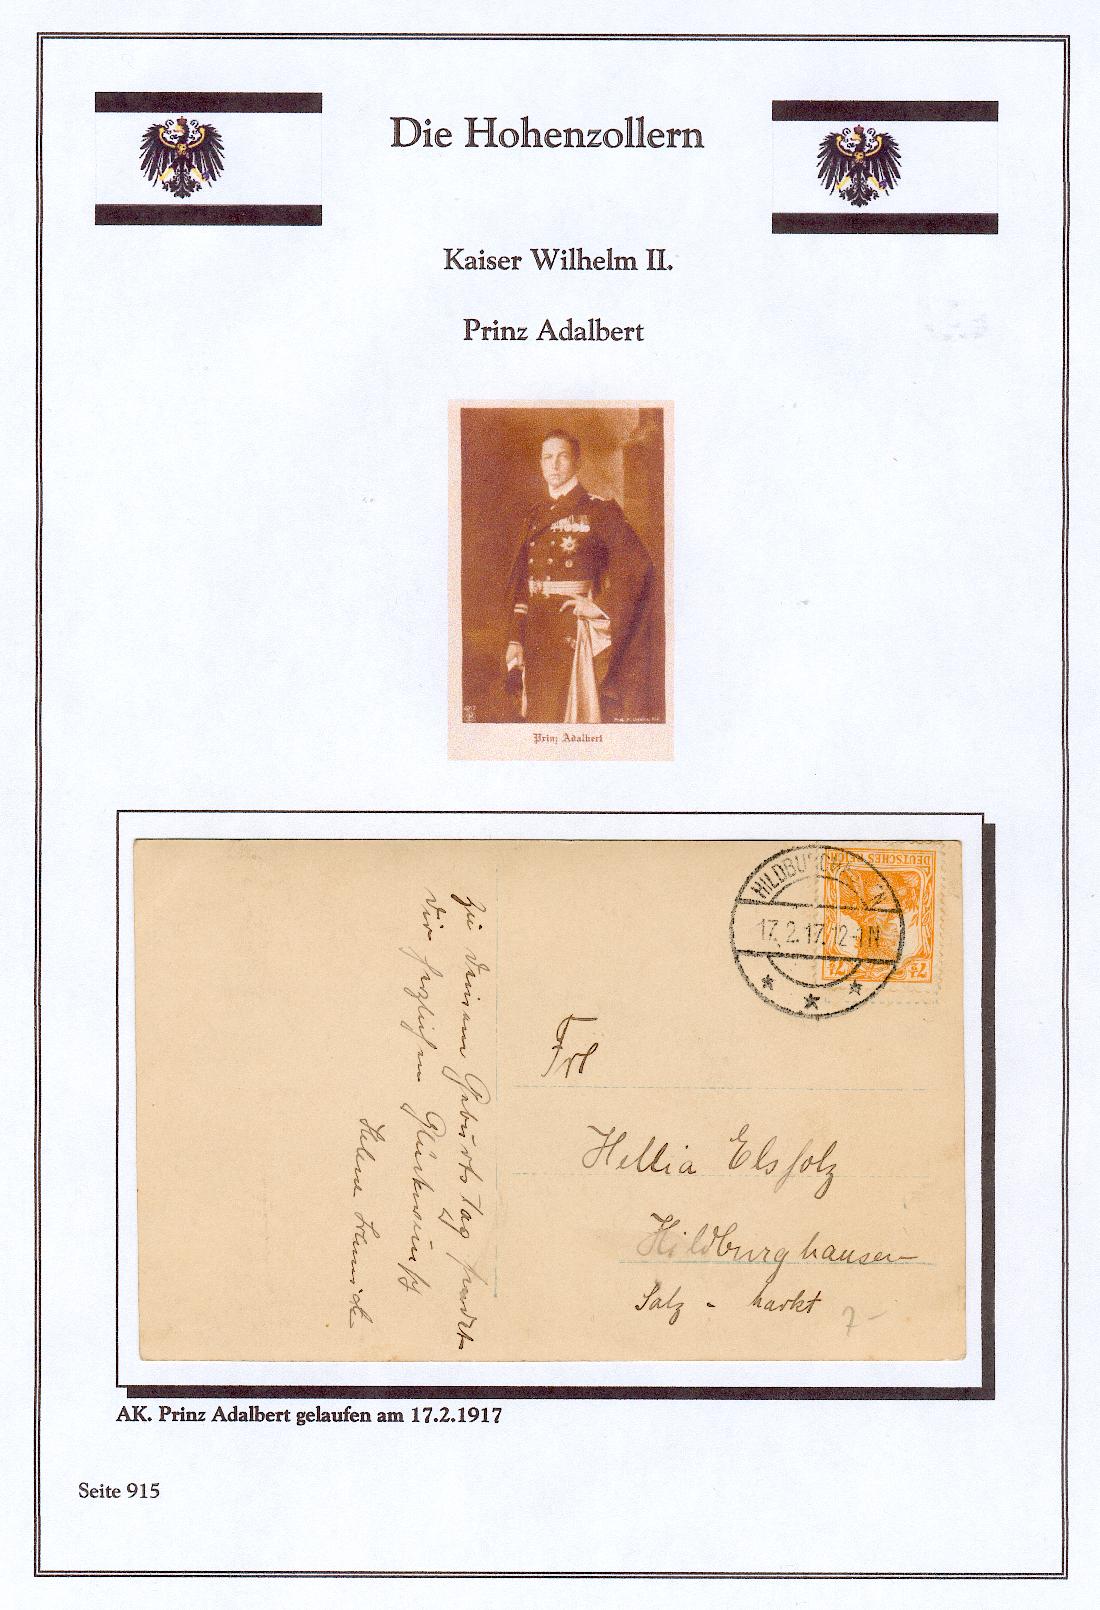 Die Hohenzollern
Kaiser Wilhelm II.
Prinz Adalbert
Prinz Adalbert
HILDBURGH N
17.2.17.12-1N
DEUTSCHES REICH
7½ 7½
Zu Deinem Geburtstag sendet
Dir herzlichen Glückwunsch
Helene
Frl
Hellia Elsholz
Hildburghausen
Salz - markt
7-
AK. Prinz Adalbert gelaufen am 17.2.1917
Seite 915